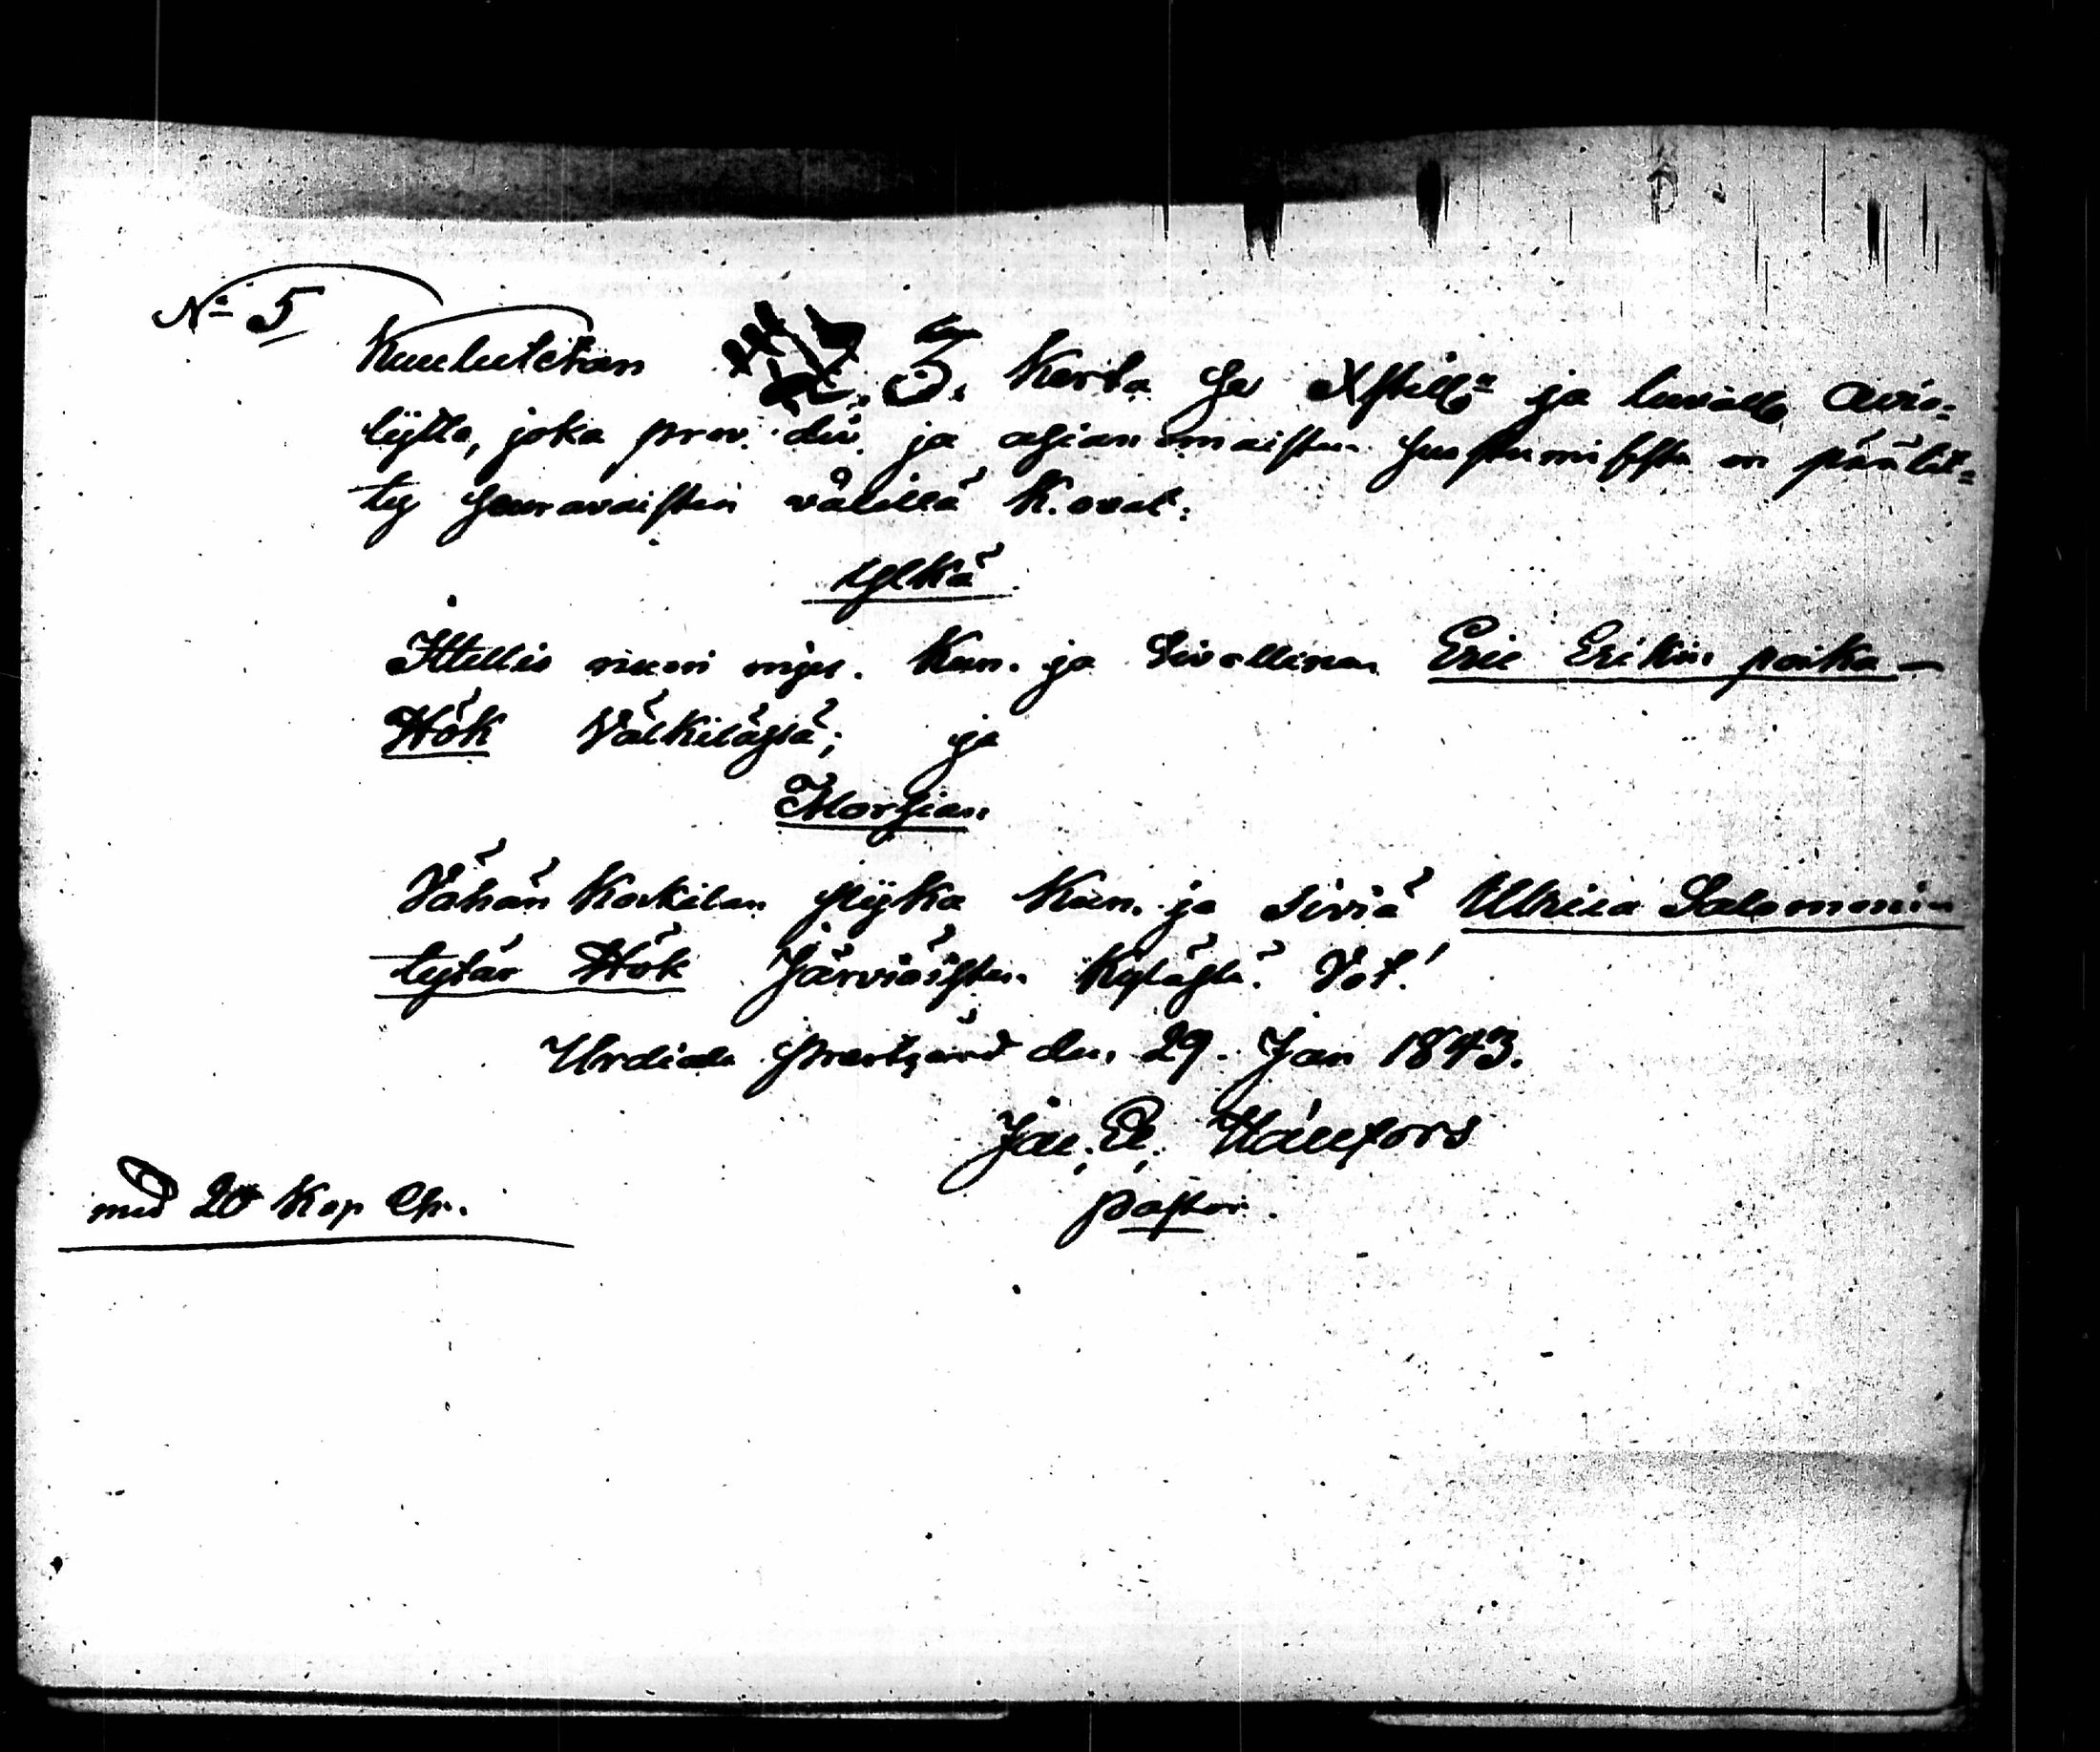 N:o 5
Kuulutetan 3. Kerta se Xstill:n ja luvall: avio=
lijtto, joka prov. div. ja asianomaisten suostumisesta on päätet=
ty seuravaisten välillä K. ovat:
Ylkä
Ittellis nuori mjes. Kun. ja Sivollinen Eric Erikin poika
Hök Välkilästä; ja
Morsian
Vähän Korkilan pijka Kun. ja siviä Ulrica Salomonin
tytär Hök Järviöisten Kylästä. Vot!
Urdiala Prestgård den 29. Jan 1843.
Jac. Ed. Hällfors
Pastor.
med 20 Kop Sr.